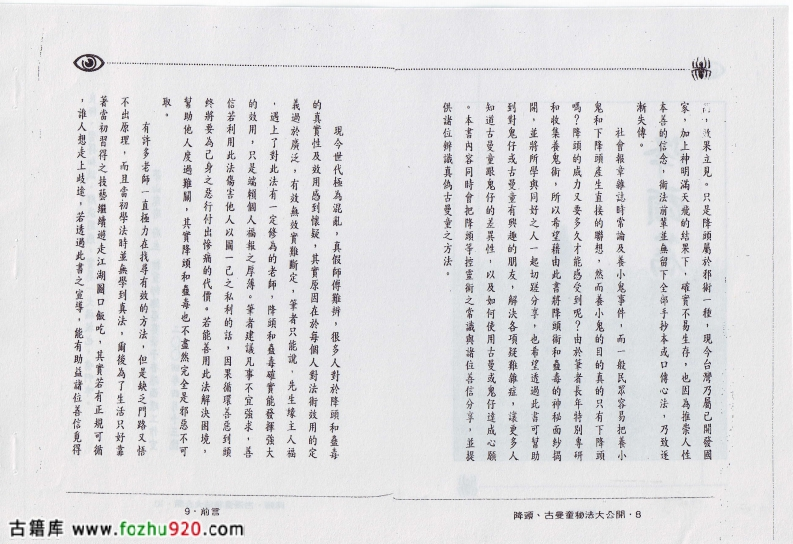 ，效果立見。只是降頭屬於邪術一種，現今台灣乃屬已開發國
家，加上神明滿天飛的結果下，確實不易生存，也因為推崇人性
本善的信念，術法前輩並無留下全部手抄本或口傳心法，乃致逐
漸失傳。
社會報章雜誌時常論及養小鬼事件，而一般民眾容易把養小
鬼和下降頭產生直接的聯想，然而養小鬼的目的真的只有下降頭
嗎？降頭的威力又要多久才能感受到呢？由於筆者長年特別專研
和收集養鬼術，所以希望藉由此書將降頭術和蠱毒的神秘面紗揭
開，並將所學與同好之人一起切磋分享，也希望透過此書可幫助
到對鬼仔或古曼童有興趣的朋友，解決各項疑難雜症，讓更多人
知道古曼童跟鬼仔的差異性，以及如何使用古曼或鬼仔達成心願
。本書內容同時會把降頭等控靈術之常識與諸位善信分享，並提
供諸位辨識真偽古曼童之方法。
降頭、古曼童秘法大公開·8
現今世代極為混亂，真假師傅難辨，很多人對於降頭和蠱毒
的真實性及效用感到懷疑，其實原因在於每個人對法術效用的定
義過於廣泛，有效無效實難斷定，筆者只能說，先生緣主人福
，遇上了對此法有一定修為的老師，降頭和蠱毒確實能發揮強大
的效用，只是端賴個人福報之厚薄。筆者建議凡事不宜強求，善
信若利用此法傷害他人以圖一己之私利的話，因果循環善惡到頭
終將要為己身之惡行付出慘痛的代價。若能善用此法解決困境，
幫助他人度過難關，其實降頭和蠱毒也不盡然完全是邪惡不可
取。
有許多老師一直極力在找尋有效的方法，但是缺乏門路又悟
不出原理，而且當初學法時並無學到真法，爾後為了生活只好靠
著當初習得之技藝繼續遊走江湖圖口飯吃，其實若有正規可循
，誰人想走上歧途，若透過此書之宣導，能有助益諸位善信覓得
9·前言
古籍库 www.fozhu920.com